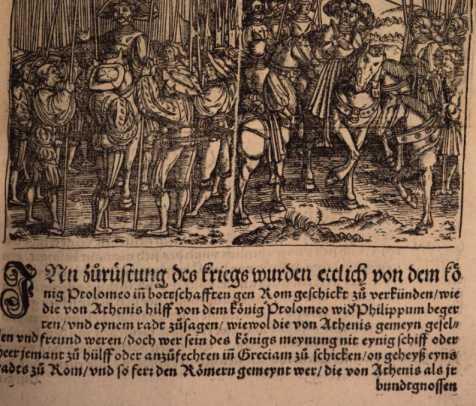 JNn zůrüstung des kriegs wurden ettlich von dem kö
nig Ptolomeo in̄ bottschafften gen Rom geschickt zů verkünden/ wie
die von Athenis hilff von dem könig Ptolomeo wid̄ Philippum beger
ten/ vnd eynem radt zůsagen/ wiewol die von Athenis gemeyn gesel-
len vnd freund weren/ doch wer sein des königs meynung nit eynig schiff oder
heer jemant zů hülff oder anzůfechten in Greciam zů schicken/ on geheyß eyns
radts zů Rom/ vnd so fert den Römern gemeynt wer/ die von Athenis als jr
bundtgnossen